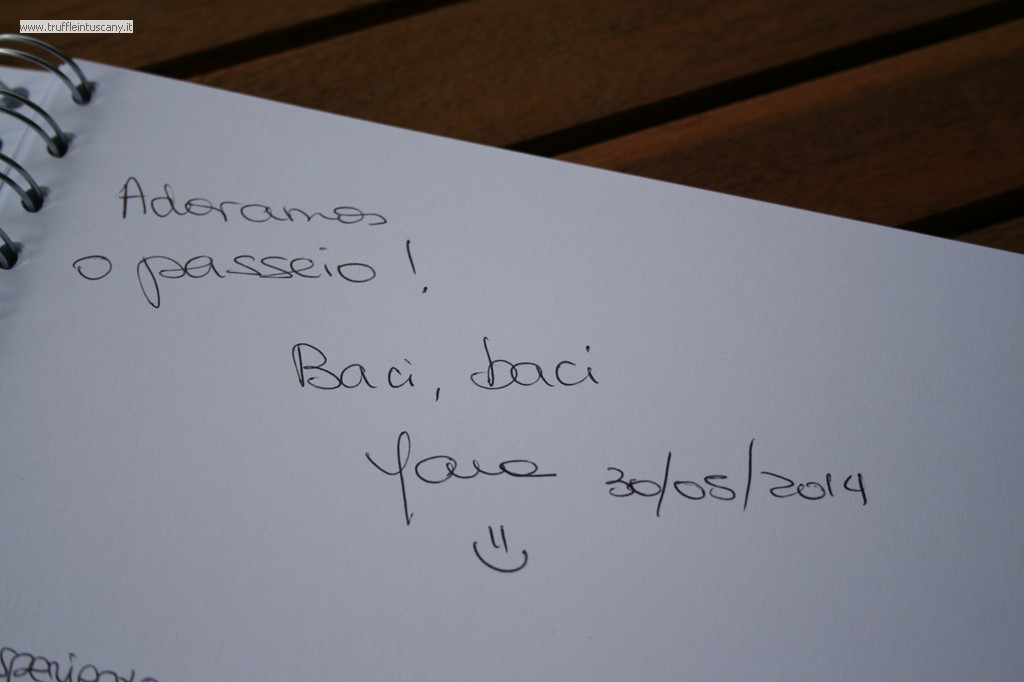 www.truffleintuscany.it
Adoramos
o passeio!
Baci, baci
Yara 30/05/2014